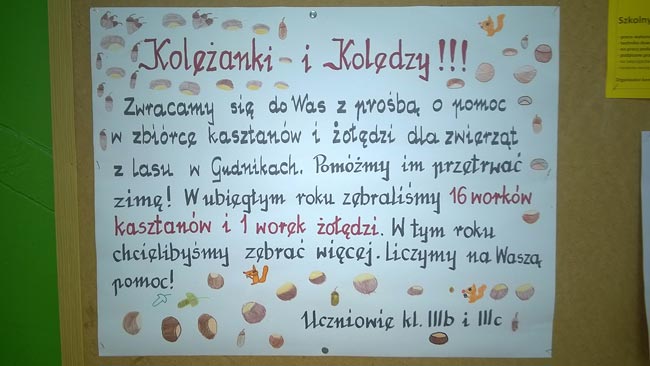 Koleżanki i Koledzy!!!
Zwracamy się do Was z prośbą o pomoc
w zbiórce kasztanów i żołędzi dla zwierząt
z lasu w Gudnikach. Pomóżmy im przetrwać
zimę! W ubiegłym roku zebraliśmy 16 worków
kasztanów i 1 worek żołędzi. W tym roku
chcielibyśmy zebrać więcej. Liczymy na Waszą
pomoc!
Uczniowie kl. IIIb i IIIc
Szkolny